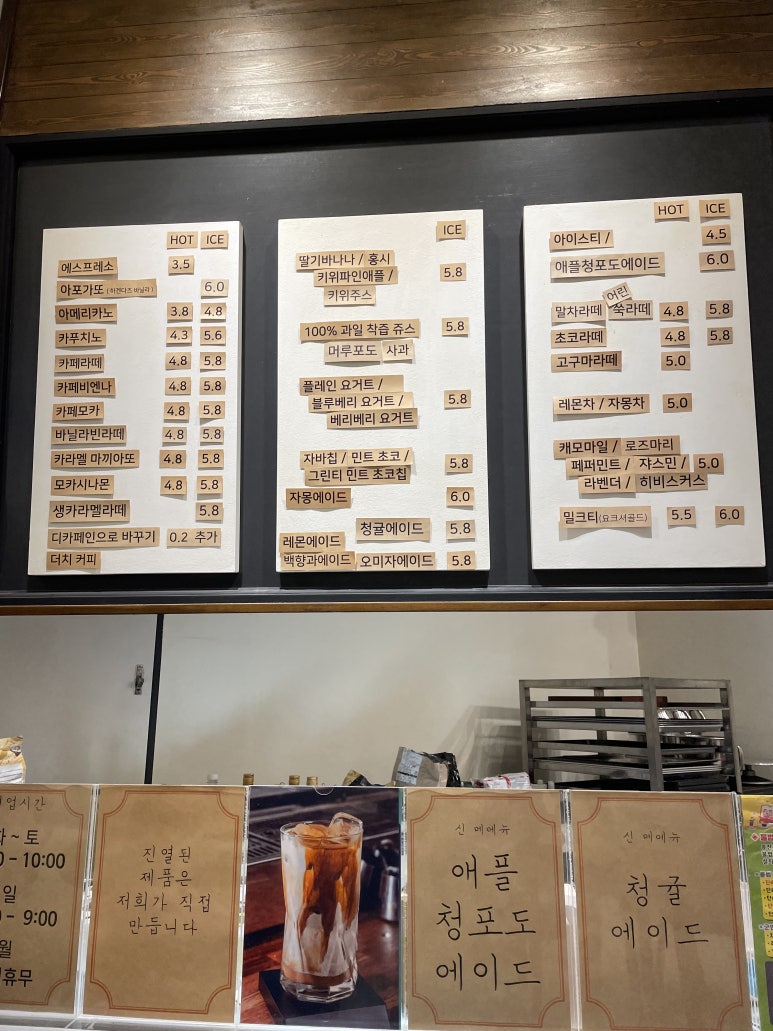 HOT ICE
에스프레소 3.5
아포가또 (하겐다즈 바닐라) 6.0
아메리카노 3.8 4.8
카푸치노 4.3 5.6
카페라떼 4.8 5.8
카페비엔나 4.8 5.8
카페모카 4.8 5.8
바닐라빈라떼 4.8 5.8
카라멜 마끼아또 4.8 5.8
모카시나몬 4.8 5.8
생카라멜라떼 5.8
디카페인으로 바꾸기 0.2 추가
더치 커피
ICE
딸기바나나 / 홍시
키위파인애플 / 5.8
키위주스
100% 과일 착즙 쥬스 5.8
머루포도 사과
플레인 요거트 /
블루베리 요거트 / 5.8
베리베리 요거트
자바칩 / 민트 초코 / 5.8
그린티 민트 초코칩
자몽에이드 6.0
청귤에이드 5.8
레몬에이드
백향과에이드 오미자에이드 5.8
HOT ICE
아이스티 / 4.5
애플청포도에이드 6.0
어린
말차라떼 쑥라떼 4.8 5.8
초코라떼 4.8 5.8
고구마라떼 5.0
레몬차 / 자몽차 5.0
캐모마일 / 로즈마리
페퍼민트 / 쟈스민 / 5.0
라벤더 / 히비스커스
밀크티(요크셔골드) 5.5 6.0
업시간
~ 토
- 10:00
일
- 9:00
월
휴무
진열된
제품은
저희가 직접
만듭니다
신 메메뉴
애플
청포도
에이드
신 메메뉴
청귤
에이드